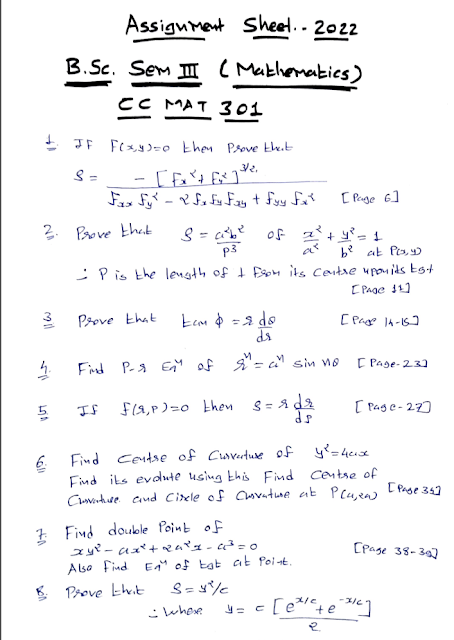 Assignment Sheet.- 2022
B.Sc. Sem III ( Mathematics)
CC MAT 301
1. If F(x,y)=0 then Prove that
S = - [ Fx² + Fy² ]^3/2 / Fxx Fy² - 2 Fx Fy Fxy + Fyy Fx² [Page 6]
2. Prove that S = a²b²/p3 of x²/a² + y²/b² = 1 at P(x,y)
∴ P is the length of ⊥ from its centre upon its tgt
[Page 11]
3 Prove that tan φ = r dθ/dr [Page 14-15]
4. Find P-r Eqn of r^n = a^n sin nθ [Page-23]
5 If f(r,p)=0 then S = r dr/dp [Page-27]
6. Find Centre of Curvature of y²=4ax
Find its evolute using this Find Centre of
Curvature and Circle of Curvature at P(a,2a) [Page 35]
7. Find double Point of
xy² - ax² + 2a²x - a³ = 0 [Page 38-39]
Also find Eqn of tgt at Point.
8. Prove that S = y²/c
∴ where y = c [e^x/c + e^-x/c] / 2